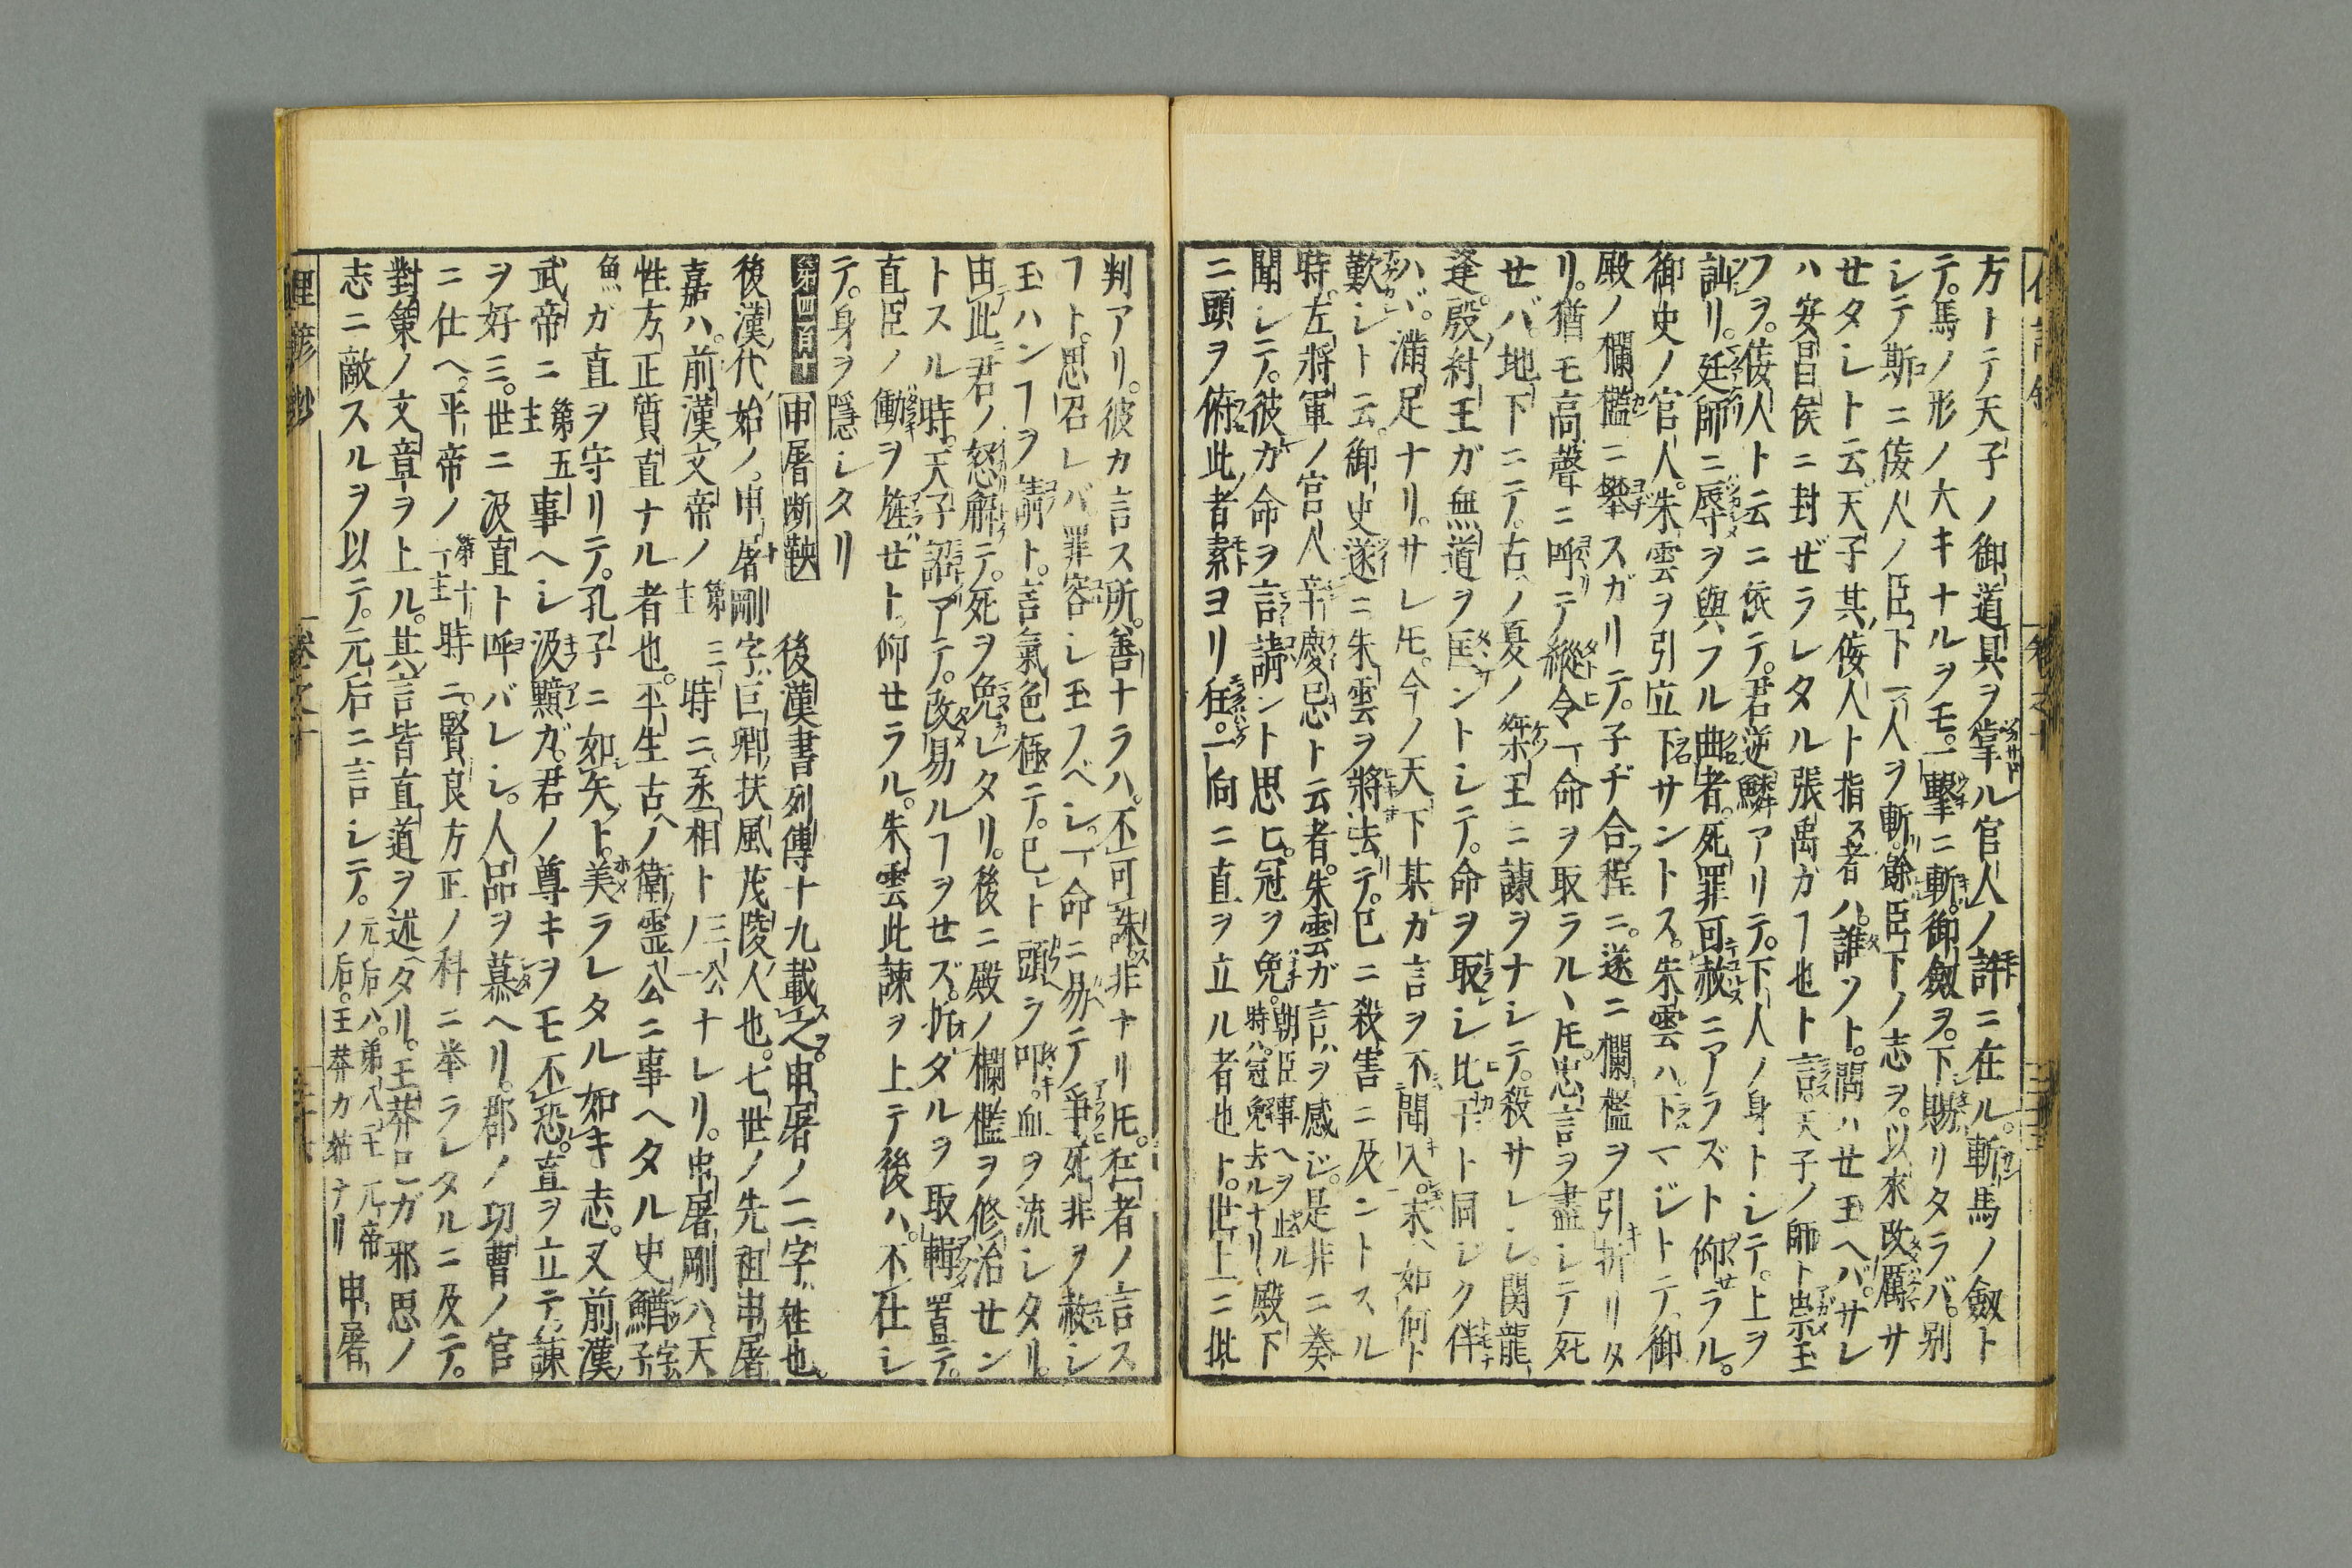 方トテ天子ノ御道具ヲ掌ル官人ノ許ニ在ル。斬馬ノ劔ト
テ。馬ノ形ノ大キナルヲモ。一撃ニ斬。御劔ヲ。下賜リタラバ。别
シテ斯ニ侫人ノ臣下一人ヲ斬。餘臣下ノ志ヲ。以来改厲サ
セタシト云。天子其侫人ト指ス者ハ。誰ソト。問ハセ玉ヘバ。サレ
ハ安昌侯ニ封ゼラレタル張禹カヿ也ト言。天子ノ師ト崇玉
フヲ。侫人ト云ニ依テ。君逆鱗アリテ。下人ノ身トシテ。上ヲ
訕リ。廷師ニ辱ヲ與フル曲者。死罪可赦ニアラズト仰セラル。
御史ノ官人。朱雲ヲ引立下サントス。朱雲ハ下マジトテ。御
殿ノ欄檻ニ攀スガリテ。子ヂ合程ニ。遂ニ欄檻ヲ引折リタ
リ。猶モ高聲ニ呼テ縱令一命ヲ取ラル、𪜈。忠言ヲ盡シテ死
セバ。地下ニテ。古ノ夏ノ桀王ニ諫ヲナシテ。殺サレシ。関龍
逢。殷紂王ガ無道ヲ匡ントシテ。命ヲ取レシ比干ト同シク伴
ハバ。満足ナリ。サレ𪜈。今ノ天下某カ言ヲ不聞入。末ハ如何ト
歎シト云。御史遂ニ朱雲ヲ將去テ。已ニ殺害ニ及ントスル
時。左將軍ノ官人辛慶忌ト云者。朱雲ガ言ヲ感ジ。是非ニ奏
聞シテ。彼ガ命ヲ言請ント思ヒ。冠ヲ免。朝臣事ヘヲ止ル時ハ。冠免去ルナリ殿下
ニ頭ヲ俯此者素ヨリ狂。一向ニ直ヲ立ル者也ト。世上ニ批
判アリ。彼カ言ス所。善ナラハ。不可誅。非ナリ𪜈。狂者ノ言ス
ヿト。思召レバ罪容シ玉フベシ。一命ニ易テ爭死非ヲ赦シ
玉ハンヿヲ請ト。言氣色極テ。已ト頭ヲ叩。血ヲ流シタリ。
由此君ノ怒解テ。死ヲ免レタリ。後ニ殿ノ欄檻ヲ修治セン
トスル時。天子詔アテ。改易ルヿヲせズ。折ダルヲ取輯置テ。
直臣ノ働ヲ旌セト。仰セラル。朱雲此諫ヲ上テ後ハ。不仕シ
テ。身ヲ隱シタリ
申屠断鞅 後漢書列傳十九載之。申屠ノ二字姓也。
後漢代始ノ。申屠剛字巨卿扶風茂陵人也。七世ノ先祖申屠
嘉ハ。前漢文帝ノ第三主時ニ。丞相ト三公ノ一ナレリ。申屠剛ハ天
性方正質直ナル者也。平生古ノ衛霊公ニ事ヘタル史鰌字子
魚ガ直ヲ守リテ。孔子ニ如矢ト。美ラレタル如キ志。又前漢
武帝ニ第五主事ヘシ汲黯ガ。君ノ尊キヲモ不恐。直ヲ立テ諫
ヲ好ミ。世ニ汲直ト呼バレシ。人品ヲ慕ヘリ。郡ノ功曹ノ官
ニ仕ヘ。平帝ノ第十一主時ニ。賢良方正ノ科ニ举ラレタルニ及テ。
對策ノ文章ヲ上ル。其言皆直道ヲ述タリ。王莽ガ邪思ノ
志ニ敵スルヲ以テ。元后ニ言シテ。元后ハ。第八主元帝ノ后。王莽カ姑ナリ申屠
俚諺抄
卷之十